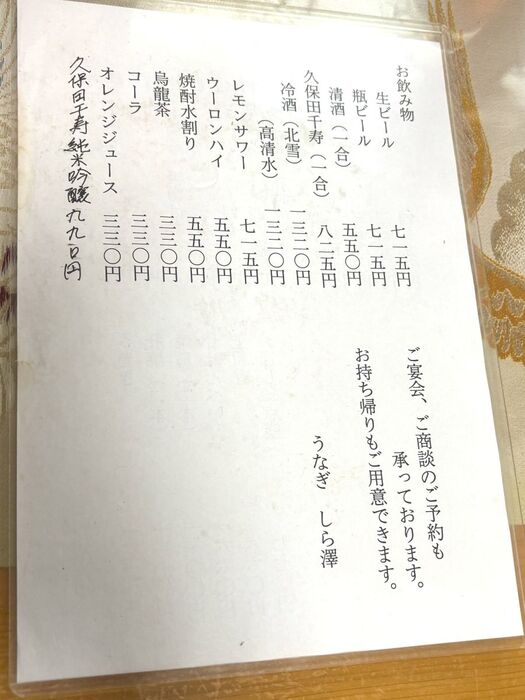 お飲み物
生ビール 七一五円
瓶ビール 七一五円
清酒（一合） 五五〇円
久保田千寿（一合） 八二五円
冷酒（北雪） 一三二〇円
（高清水） 一三二〇円
レモンサワー 七一五円
ウーロンハイ 五五〇円
焼酎水割り 五五〇円
烏龍茶 三三〇円
コーラ 三三〇円
オレンジジュース 三三〇円
久保田千寿 純米吟醸 九九〇円
ご宴会、ご商談のご予約も
承っております。
お持ち帰りもご用意できます。
うなぎ しら澤